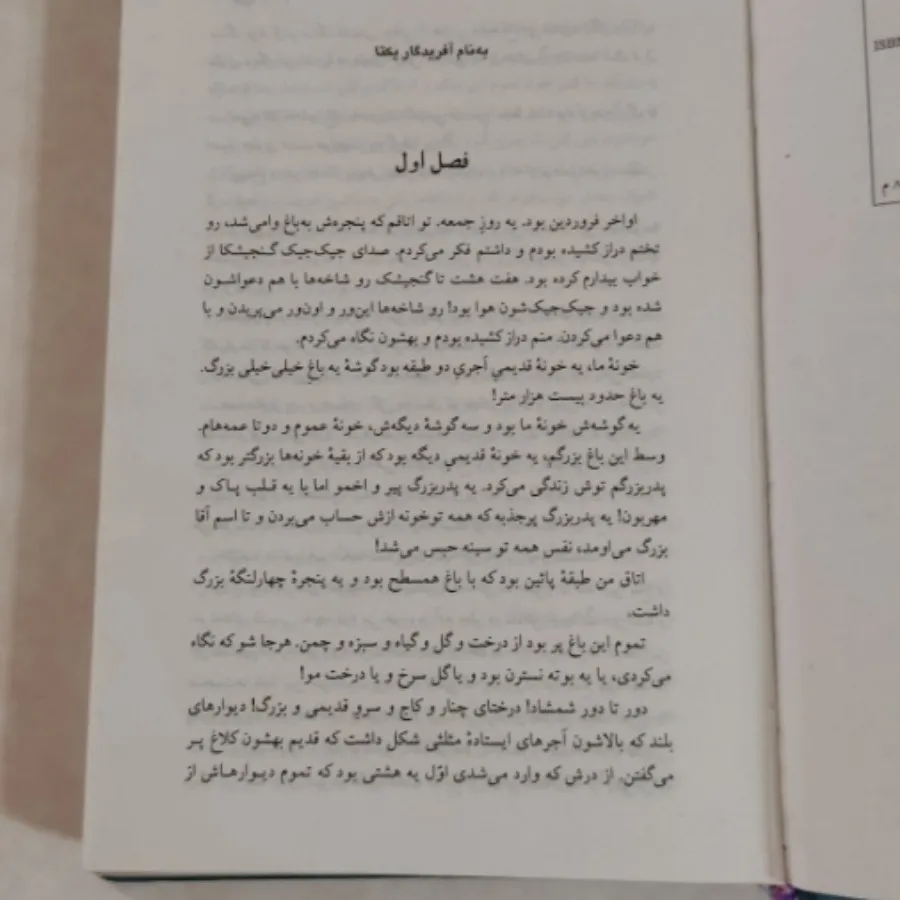 به‌نام آفریدگار یکتا
فصل اول
اواخر فروردین بود. یه روزِ جمعه. تو اتاقم که پنجره‌ش به‌باغ وامی‌شد، رو
تختم دراز کشیده بودم و داشتم فکر می‌کردم. صدای جیک‌جیک گنجیشکا از
خواب بیدارم کرده بود. هفت هشت تا گنجیشک رو شاخه‌ها با هم دعواشون
شده بود و جیک‌جیک‌شون هوا بود! رو شاخه‌ها این‌ور و اون‌ور می‌پریدن و با
هم دعوا می‌کردن. منم دراز کشیده بودم و بهشون نگاه می‌کردم.
خونهٔ ما، یه خونهٔ قدیمیِ آجریِ دو طبقه بود گوشهٔ یه باغِ خیلی‌خیلی بزرگ.
یه باغ حدود بیست هزار متر!
یه گوشه‌ش خونهٔ ما بود و سه گوشهٔ دیگه‌ش، خونهٔ عموم و دوتا عمه‌هام.
وسط این باغ بزرگم، یه خونهٔ قدیمیِ دیگه بود که از بقیهٔ خونه‌ها بزرگتر بود که
پدربزرگم توش زندگی می‌کرد. یه پدربزرگ پیر و اخمو اما با یه قلب پاک و
مهربون! یه پدربزرگ پرجذبه که همه توخونه ازش حساب می‌بردن و تا اسم آقا
بزرگ می‌اومد، نفس همه تو سینه حبس می‌شد!
اتاق من طبقهٔ پائین بود که با باغ همسطح بود و یه پنجرهٔ چهارلنگهٔ بزرگ
داشت.
تموم این باغ پر بود از درخت و گل و گیاه و سبزه و چمن. هرجا شو که نگاه
می‌کردی، یا یه بوته نسترن بود و یاگل سرخ و یا درخت مو!
دور تا دور شمشاد! درختای چنار و کاج و سروِ قدیمی و بزرگ! دیوارهای
بلند که بالاشون آجرهای ایستادهٔ مثلثی شکل داشت که قدیم بهشون کلاغ پر
می‌گفتن. از درش که وارد می‌شدی اوّل یه هشتی بود که تموم دیوارهاش از
ISBN
م